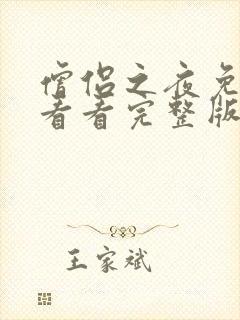 僧侣之夜免
看看完整版
王家斌